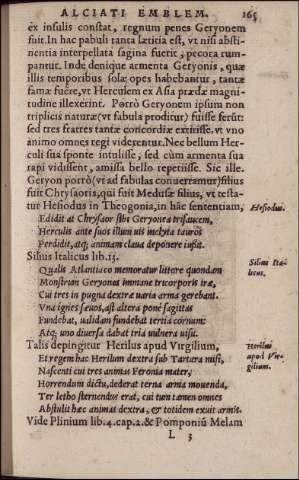 ALCIATI EMBLEM. 165
ex insulis constat, regnum penes Geryonem
fuit. In hac pabuli tanta lætitia est, vt nisi absti-
nentia interpellata sagina fuerit, pecora rum-
pantur. Inde denique armenta Geryonis, quæ
illis temporibus solæ opes habebantur, tantæ
famæ fuêre, vt Herculem ex Asia prædæ magni-
tudine illexerint. Porrò Geryonem ipsum non
triplicis naturæ (vt fabula proditur) fuisse ferūt:
sed tres fratres tantæ concordiæ extitisse, vt vno
animo omnes regi viderentur. Nec bellum Her-
culi sua sponte intulisse, sed cùm armenta sua
rapi vidissent, amissa bello repetiisse. Sic ille.
Geryon porrò (vt ad fabulas conuertamur) filius
fuit Chrysaoris, qui fuit Medusæ filius, vt testa-
tur Hesiodus in Theogonia, in hæc sententiam, Hesiodus.
Edidit at Chrysaor sibi Geryonea trifaucem,
Herculis ante suos illum uis inclyta tauros
Perdidit, atq; animam claua deponere iussit.
Silius Italicus lib. 13. Silius Ita-
licus.
Qualis Atlantiaco memoratur littore quondam
Monstrum Geryones immane tricorporis iræ,
Cui tres in pugna dextræ uaria arma gerebant.
Vna ignes sæuos, ast altera pone sagittas
Fundebat, ualidam fundebat tertia cornum:
Atq; uno diuersa dabat tria uulnera nisu.
Talis depingitur Herilus apud Virgilium, Herilus
apud Vir-
gilium.
Et regem hac Herilum dextra sub Tartara misi,
Nascenti cui tres animas Feronia mater,
Horrendum dictu, dederat terna arma mouenda,
Ter letho sternendus erat, cui tum tamen omnes
Abstulit hæc animas dextra, & totidem exuit armis.
Vide Plinium lib. 4. cap. 2. & Pomponiū Melam
L 3